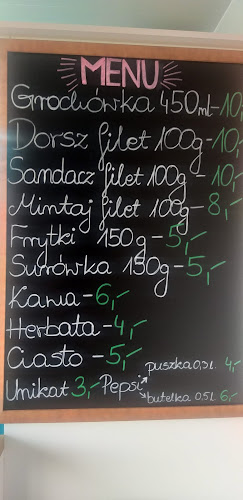 MENU
Grochówka 450ml-10,-
Dorsz filet 100g-10,-
Sandacz filet 100g-10,-
Mintaj filet 100g-8,-
Frytki 150g-5,-
Surówka 150g-5,-
Kawa-6,-
Herbata-4,-
Ciasto-5,-
puszka 0,3l. 4,-
Unikat 3,- Pepsi
butelka 0.5l. 6,-